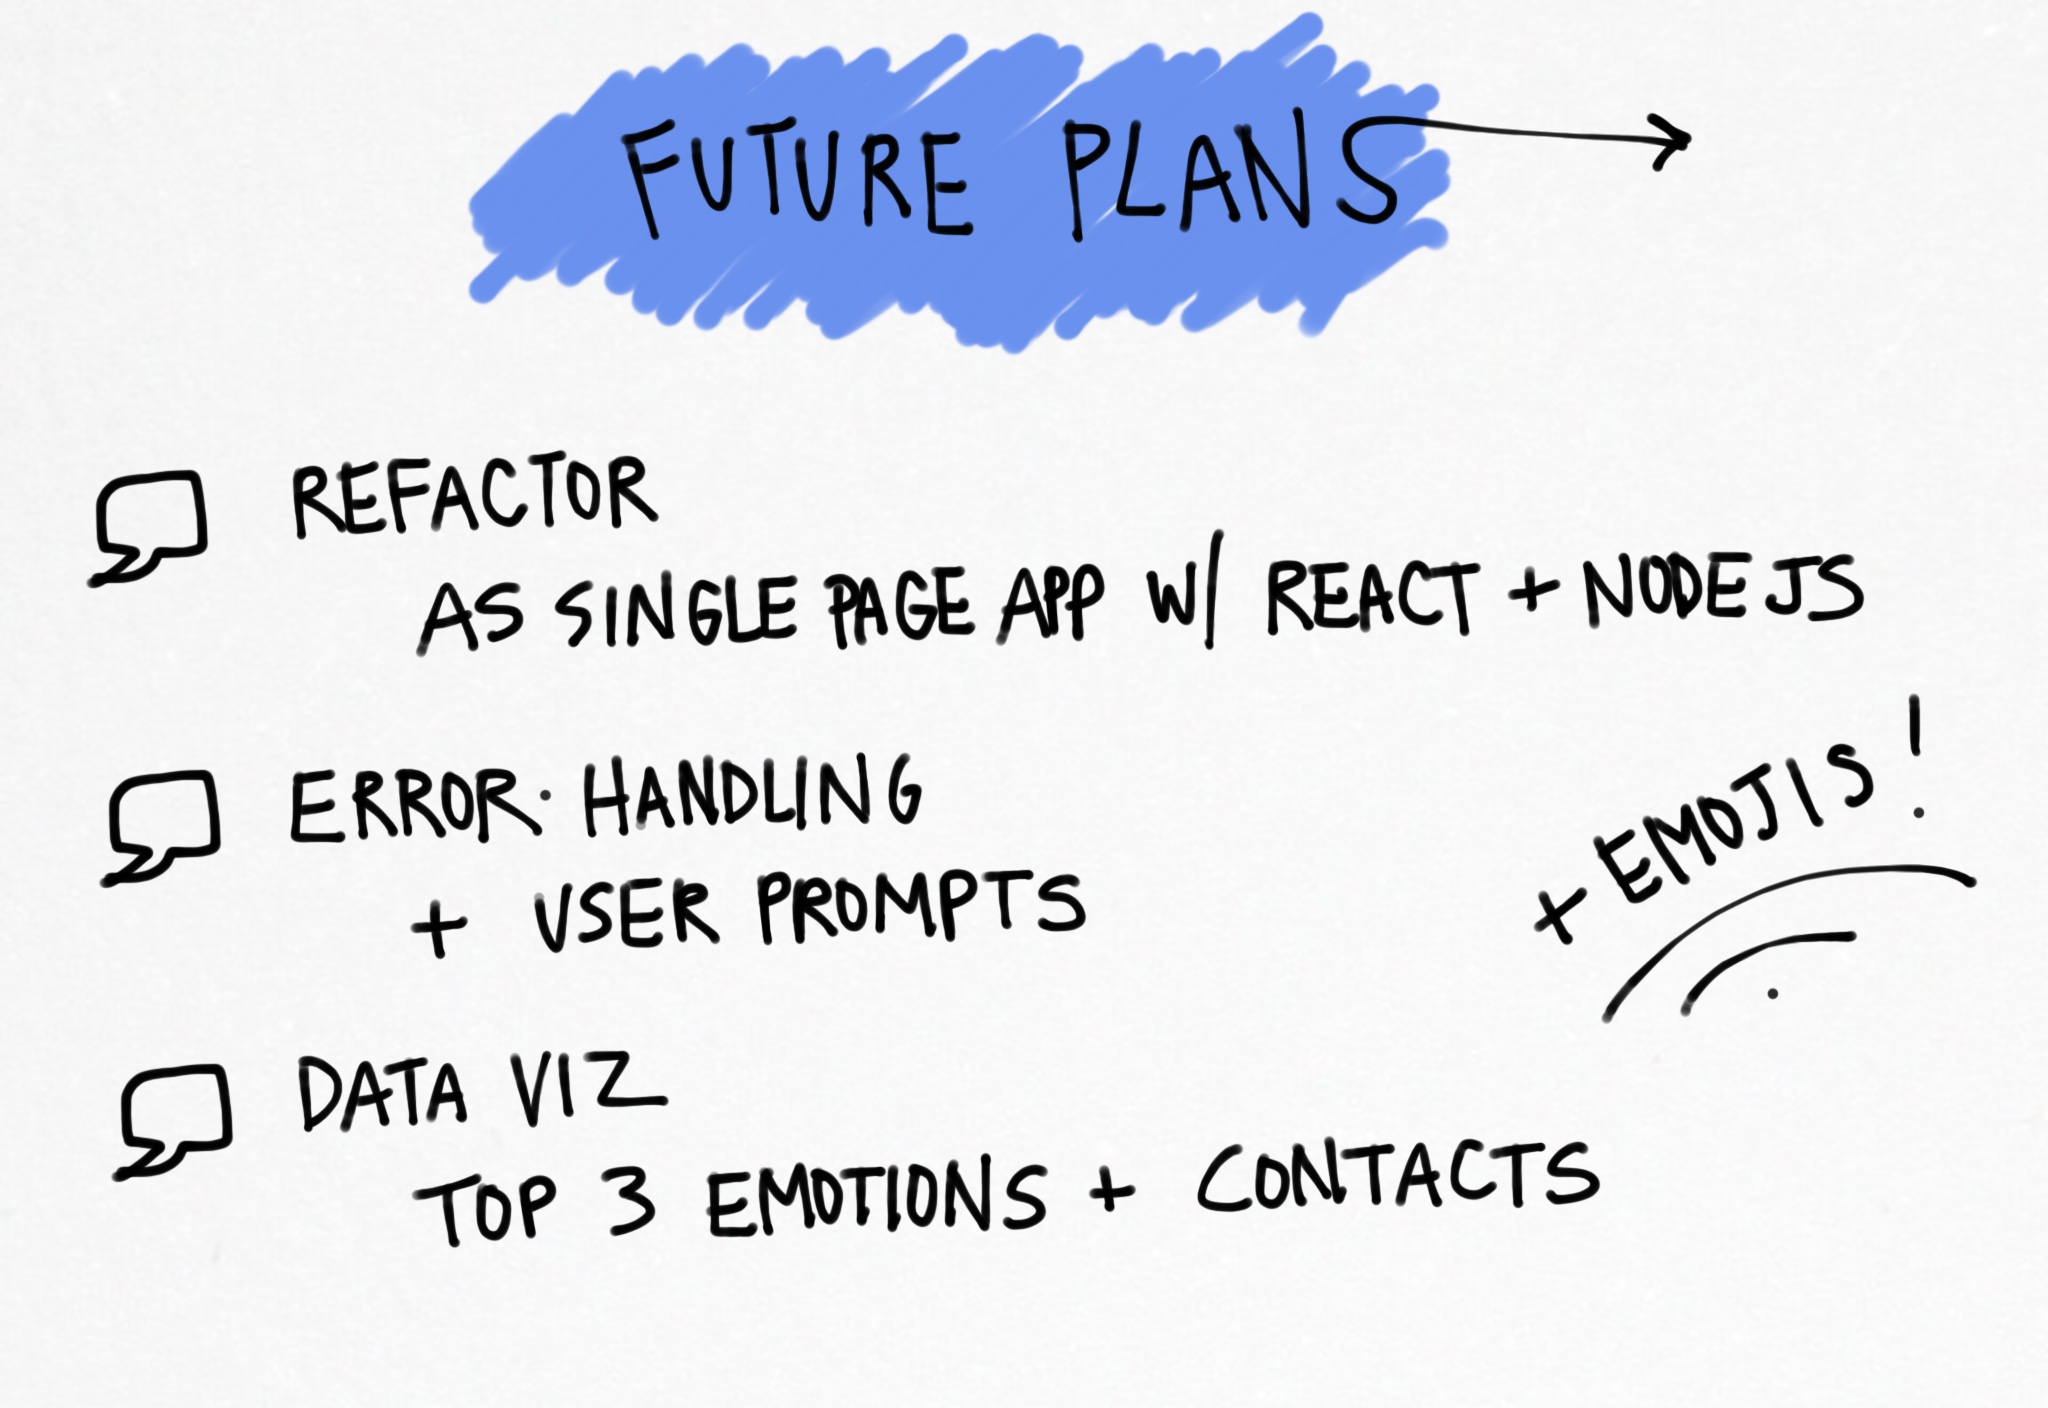 FUTURE PLANS
REFACTOR
AS SINGLE PAGE APP W/ REACT + NODE JS
ERROR HANDLING
+ USER PROMPTS
+ EMOJIS!
DATA VIZ
TOP 3 EMOTIONS + CONTACTS